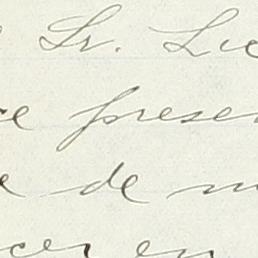 Sr. Lic
ce presen
e de m
cer en